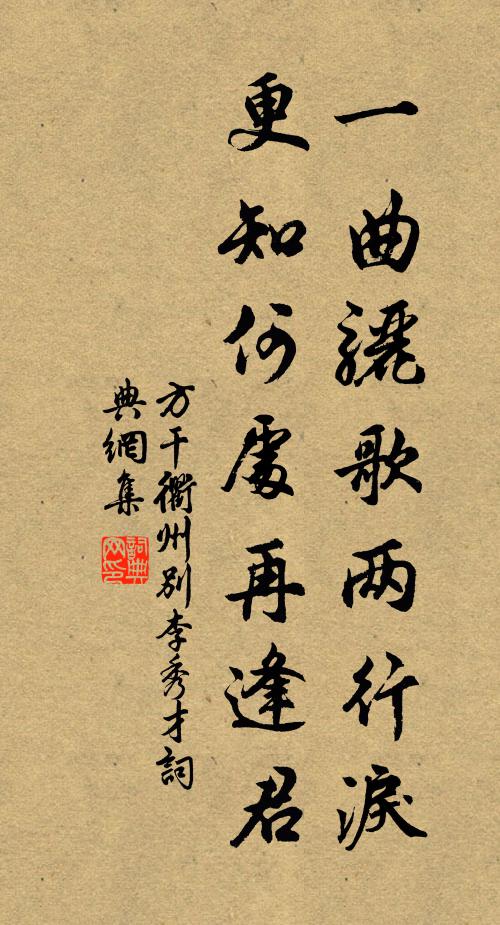 一曲驪歌两行淚
更知何處再逢君
方干衢州别李秀才詞
典網集
詞典
网印